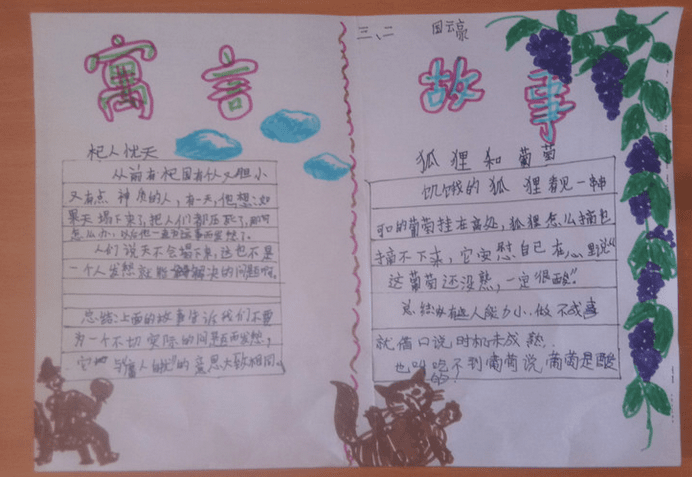 寓言
杞人忧天
从前有杞国有个又胆小
又有点 神质的人，有一天，他想：如
果天塌下来了，把人们都压死了，那可
怎么办，以后他一直为这事而发愁了。
人们说天不会塌下来，这也不是
一个人发愁就能解决的问题啊。
总结：上面的故事告诉我们不要
为一个不切实际的问题而发愁，
它 人 的意思大致相同。
三、二 国云豪
故事
狐狸和葡萄
饥饿的狐狸看见一串串
的葡萄挂在高处，狐狸怎么摘也
摘不下来，它安慰自己在心里说“
这葡萄还没熟，一定很酸”。
总结：有些人能力小，做不成事
就借口说，时机未成熟。
也叫吃不到葡萄说葡萄是酸
的！